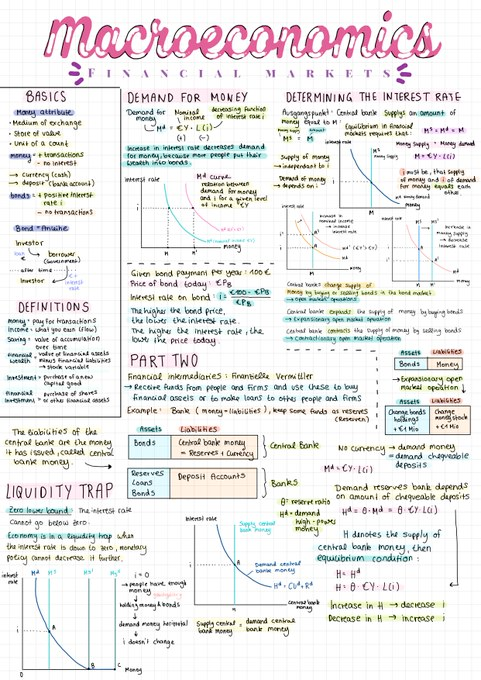 Macroeconomics
FINANCIAL MARKETS
BASICS
Money attribute
• Medium of exchange
• Store of value
• Unit of a count
money = + transactions
- no interest
→ currency (cash)
→ deposit (bank account)
bonds = + positive interest
rate i
- no transactions
Bond = Anleihe
Investor
borrower
(government)
after time
Investor
DEFINITIONS
Money = pay for transactions
Income = what you earn (flow)
Saving = value of accumulation
over time
Financial wealth = value of financial assets
minus financial liabilities
→ stock variable
Investment = purchase of a new
capital good
Financial investment = purchase of shares
or other financial assets
The liabilities of the
central bank are the money
it has issued, called central
bank money.
LIQUIDITY TRAP
Zero lower bound: The interest rate
cannot go below zero.
Economy is in a liquidity trap when
the interest rate is down to zero, monetary
policy cannot decrease it further
interest
rate
i
A
B
C
0
Money
i = 0
→ people have enough
money
holding money & bonds
demand money horizontal
i doesn't change
DEMAND FOR MONEY
Demand for
money
Nominal
income
decreasing function
of interest rate i
Mᵈ = €Y · L(i)
(+) (-)
Increase in interest rate decreases demand
for money, because more people put their
wealth into bonds
interest rate
Mᵈ curve
relation between
demand for money
and i for a given level
of income €Y
i
M
Money
Given bond payment per year: 100 €
Price of bond today: €PB
Interest rate on bond: i = (€100 - €PB) / €PB
The higher the bond price,
the lower the interest rate.
The higher the interest rate, the
lower the price today.
PART TWO
Financial intermediaries: Finanzielle Vermittler
→ Receive funds from people and firms and use these to buy
financial assets or to make loans to other people and firms
Example: Bank (money = liabilities), keep some funds as reserves
(Reserven)
Assets Liabilities
Bonds
Central bank money
= Reserves + Currency
Central Bank
Reserves
Loans
Bonds
Deposit Accounts
Banks
interest rate
Supply central
bank money
i
A
Demand central
bank money
Hᵈ = CUᵈ + Rᵈ
H
central bank
money
Supply central
bank money = demand central
bank money
θ = reserve ratio
Hᵈ = demand
high-power
money
DETERMINING THE INTEREST RATE
Ausgangspunkt: Central bank supplys an amount of
money equal to M
Mˢ = M
Supply of money
→ independent to i
Demand of money
→ depends on i
Equilibrium in financial
markets requires that:
Mˢ = Mᵈ = M
Money Supply = Money demand
M = €Y · L(i)
i must be, that supply
of money and i of demand
for money equals each
other
Money supply
A
Money demand
M
Increase in
nominal income
→ increase
interest rate
Increase in
money supply
→ decrease
interest rate
Central banks change supply of
money by buying or selling bonds in the bond market
→ Open market operations
Central banks expands the supply of money by buying bonds
→ Expansionary open market operation
Central banks contracts the supply of money by selling bonds
→ Contractionary open market operation
Assets Liabilities
Bonds Money
→ Expansionary open
market operation
Assets Liabilities
Change bonds
holdings
+ €1 Mio
Change
money stock
+ €1 Mio
No currency → demand money
= demand chequeable
deposits
Mᵈ = €Y · L(i)
Demand reserves bank depends
on amount of chequeable deposits
Hᵈ = θ · Mᵈ = θ · €Y · L(i)
H denotes the supply of
central bank money, then
equilibrium condition:
H = Hᵈ
H = θ · €Y · L(i)
Increase in H → decrease i
Decrease in H → increase i